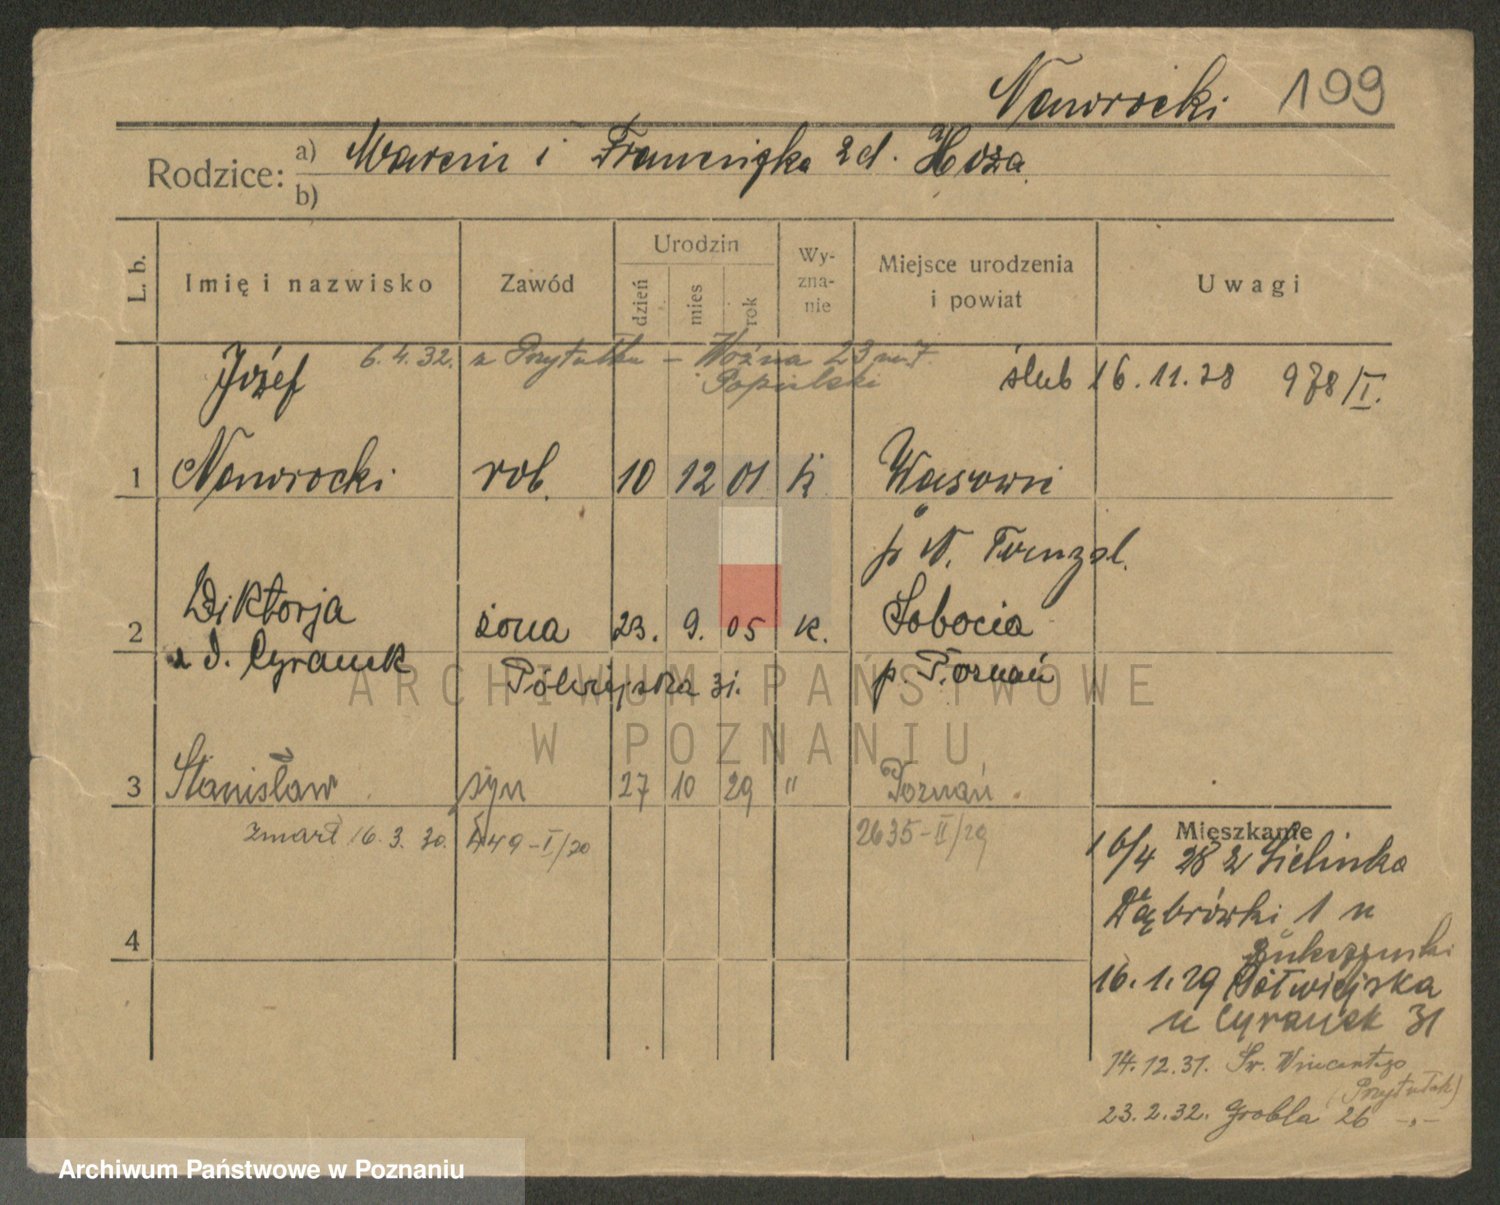 Nawrocki 199
Rodzice: a) Marcin i Franciszka z d. Hoza
b)
L. b. Imię i nazwisko Zawód Urodzin dzień mies rok Wyznanie Miejsce urodzenia i powiat Uwagi
6.4.32. z Przytułku – Woźna 23 m 7.
Popielski
Józef ślub 16.11.28 978/I.
1 Nawrocki rob. 10 12 01 k Wąsowie
p N. Tomysl.
2 Wiktorja żona 23. 9. 05 k. Sobocia
z d. Cyranek Półwiejska 31. p. Poznań
3 Stanisław syn 27 10 29 " Poznań.
zmarł 16.3.30. 449-I/30 2635-II/29
4
Mieszkanie
16/4 28 z Zielinka
Dąbrówki 1 u
16.1.29 Półwiejska
u Cyranek 31
14.12.31. Św. Wincentego
(Przytułek)
23.2.32. Grobla 26 -„-
ARCHIWUM PAŃSTWOWE
W POZNANIU
Archiwum Państwowe w Poznaniu